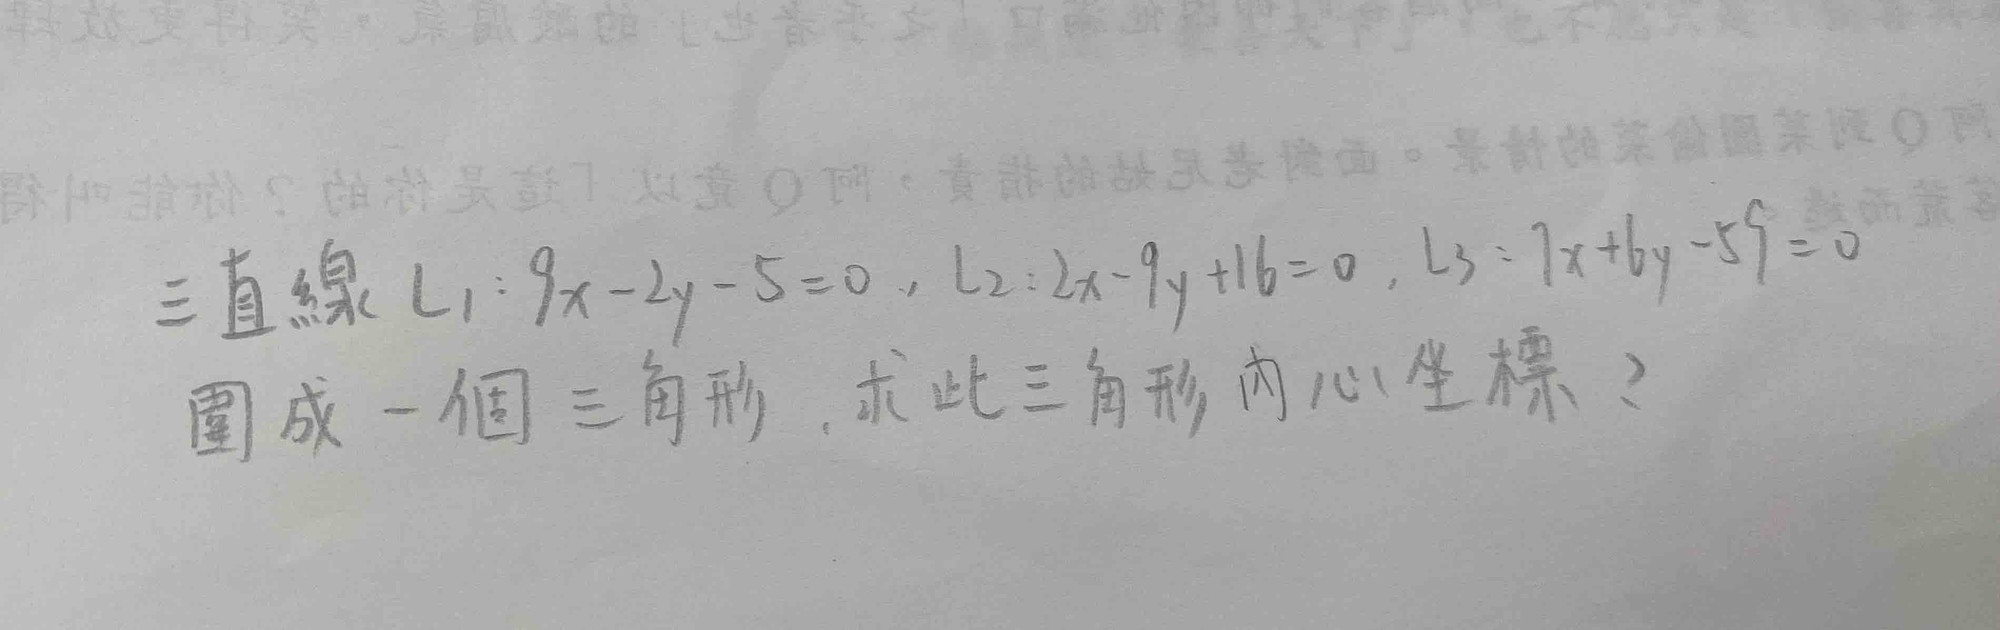 三直線 L1:9x-2y-5=0, L2:2x-9y+16=0, L3:7x+6y-59=0
圍成一個三角形,求此三角形內心坐標?